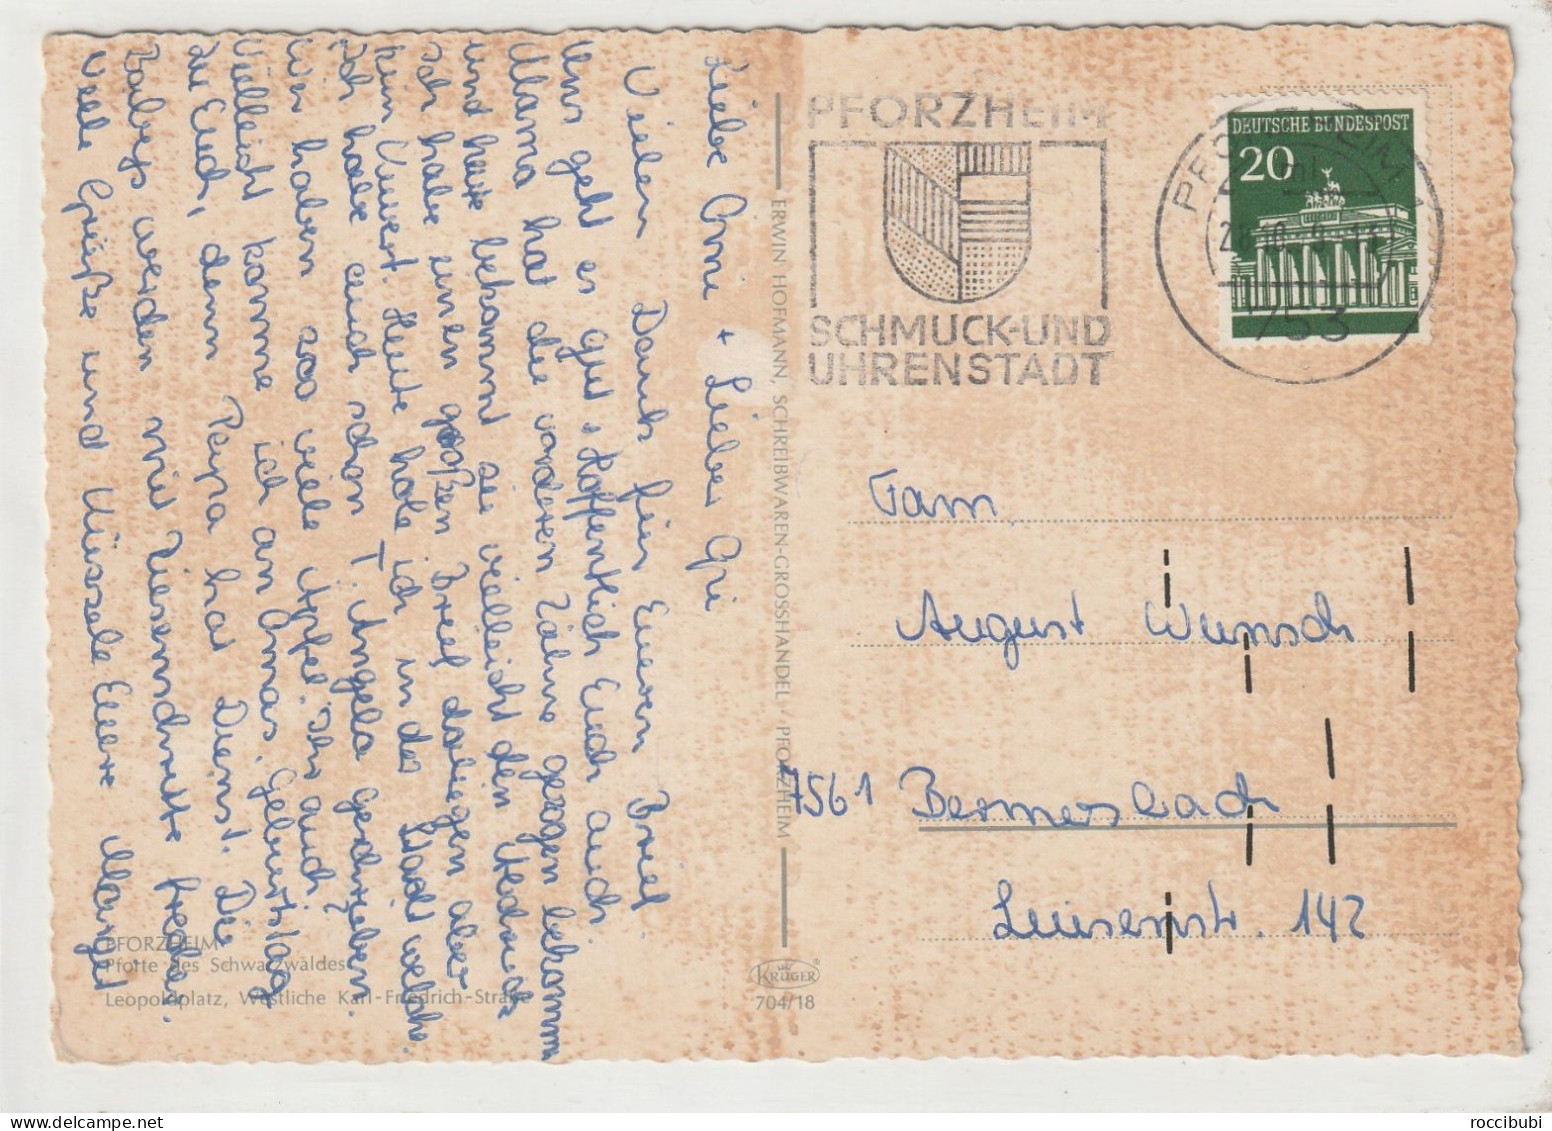 Liebe Omi + Lieber Opi
Vielen Dank für Eueren Brief.
Uns geht es gut, Hoffentlich Euch auch.
Mama hat die vorderen Zähne gezogen bekommen
und heute bekommt sie vielleicht den
Ich habe einen großen Brief daliegen aber
kein Kuvert. Heute hole ich in der Stadt welche.
Ich habe auch schon T. Angela geschrieben.
Wir haben soo viele Äpfel. Ihr auch?
Vielleicht komme ich an Omas Geburtstag
zu Euch, denn Papa hat Dienst. Die
werden mit Riesenschritte frecher.
Viele Grüße und Küssele Euere Margit
PFORZHEIM
Pforte des Schwarzwaldes
Leopoldplatz, Westliche Karl-Friedrich-Straße
ERWIN HOFMANN, SCHREIBWAREN-GROSSHANDEL · PFORZHEIM
KRÜGER
704/18
PFORZHEIM
SCHMUCK-UND
UHRENSTADT
PFORZHEIM 1
753
DEUTSCHE BUNDESPOST
20
Fam.
August Wunsch
7561 Bermersbach
Luisenstr. 142
roccibubi